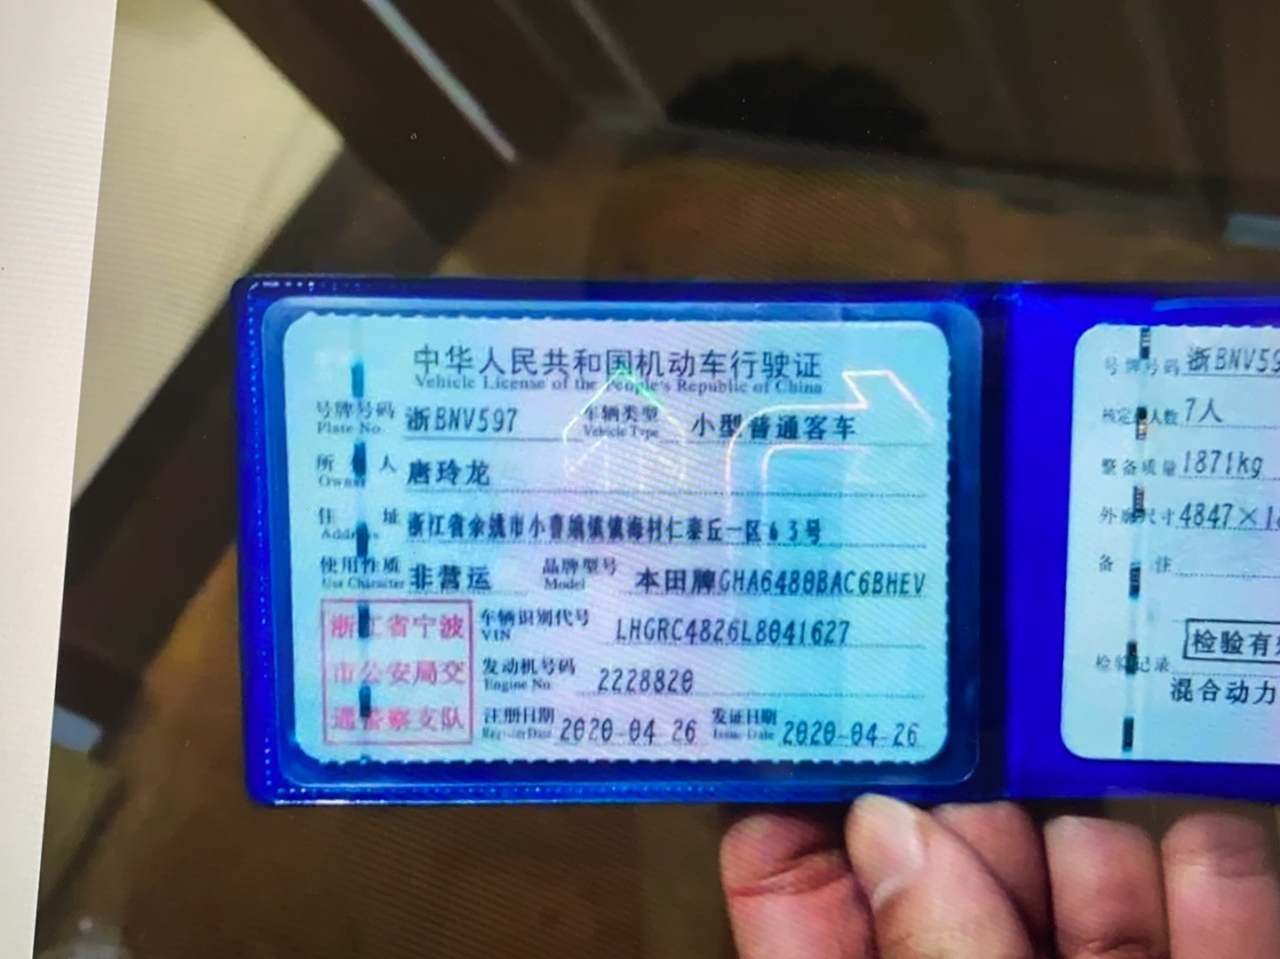 中华人民共和国机动车行驶证
Vehicle License of the People's Republic of China
号牌号码 浙BNV597 车辆类型 小型普通客车
Plate No. Vehicle Type
所有人 唐玲龙
Owner
住址 浙江省余姚市小曹娥镇镇海村仁泰丘一区63号
Address
使用性质 非营运 品牌型号 本田牌GHA6480BAC6BHEV
Use Character Model
浙江省宁波
市公安局交
通警察支队
车辆识别代号 LHGRC4826L8041627
VIN
发动机号码 2228820
Engine No.
注册日期 2020-04-26 发证日期 2020-04-26
Register Date Issue Date
号牌号码 浙BNV59
核定人数 7人
整备质量 1871kg
外廓尺寸 4847×1
备注
检验有
检验记录
混合动力